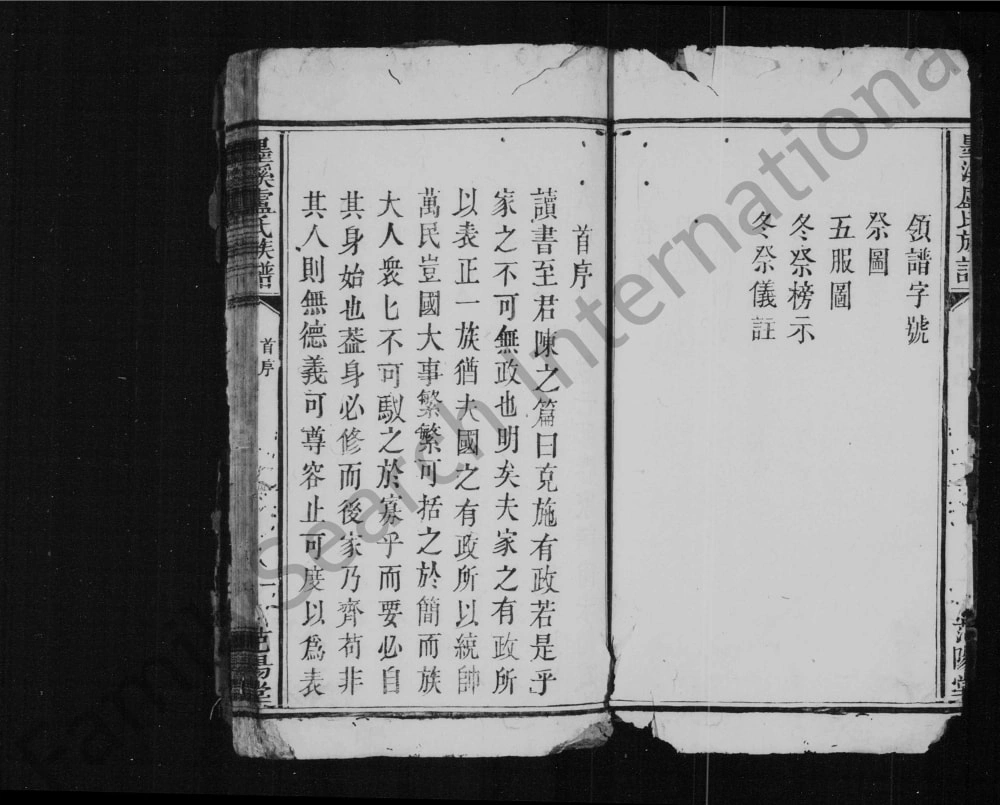 墨溪盧氏族譜
領譜字號
祭圖
五服圖
冬祭榜示
冬祭儀註
范陽堂
首序
讀書至君陳之篇曰克施有政若是乎
家之不可無政也明矣夫家之有政所
以表正一族猶夫國之有政所以統帥
萬民豈國大事繁繁可括之於簡而族
大人衆匕不可馭之於寡乎而要必自
其身始也葢身必修而後家乃齊苟非
其人則無德義可尊容止可度以爲表
墨溪盧氏族譜
首序
范陽堂
FamilySearch International